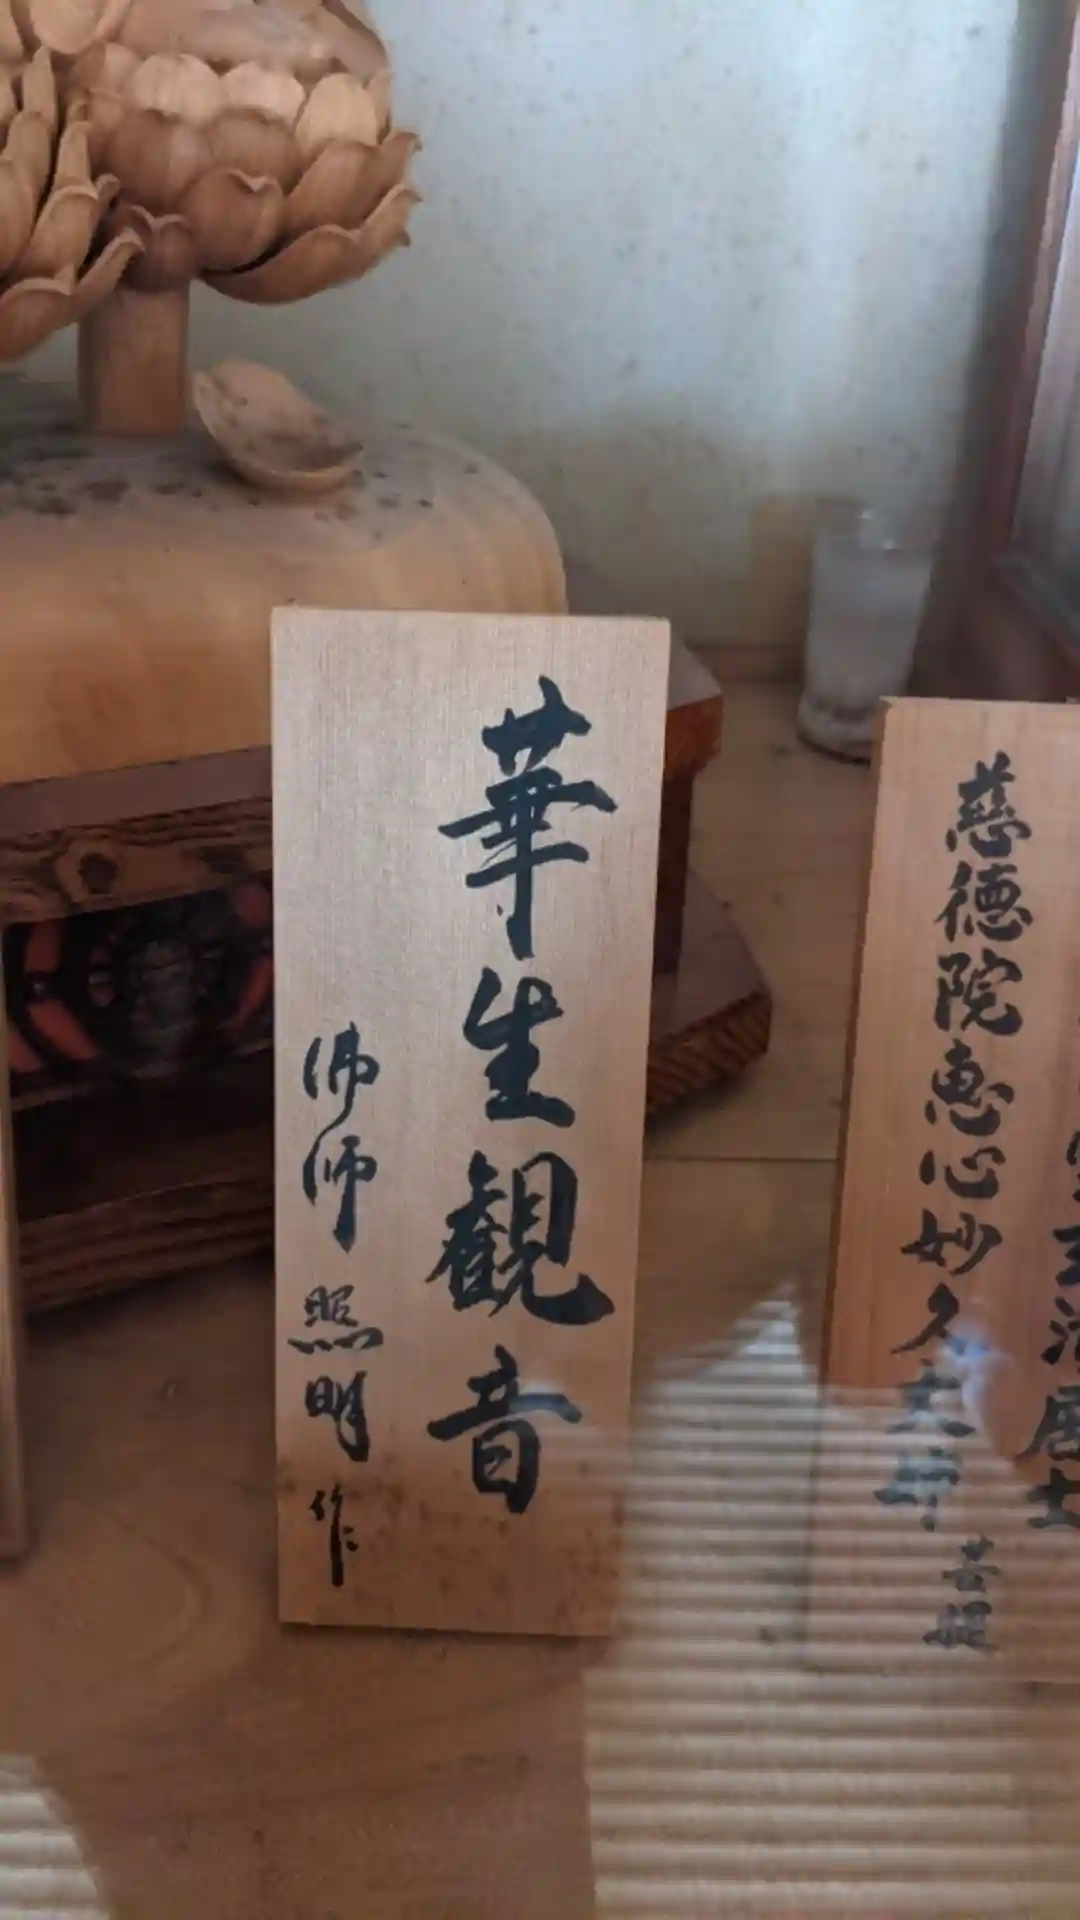 華生観音
佛师 照明 作
慈徳院恵心妙久大姉 菩提